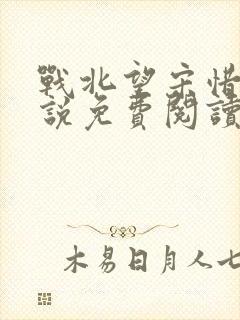 戰北望宋惜
說免費閱讀
木易日月人七